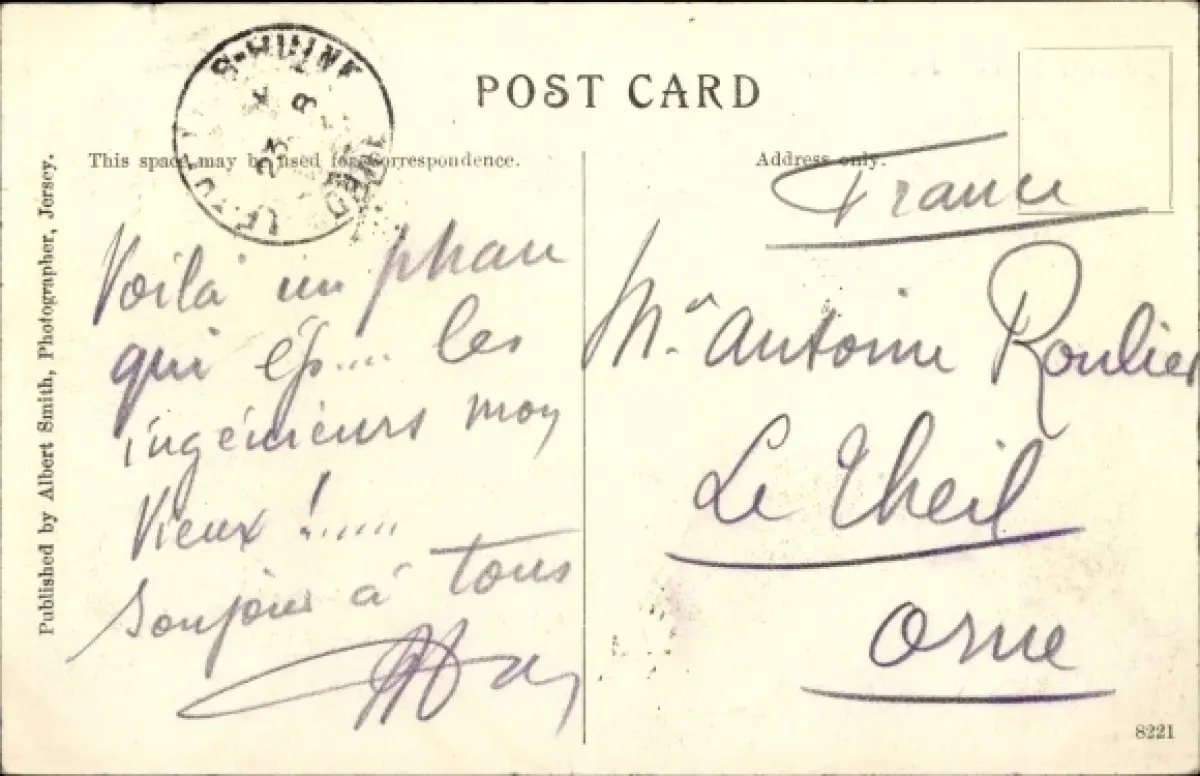 POST CARD
This space may be used for Correspondence.
Address only.
Published by Albert Smith, Photographer, Jersey.
Voilà un phau
qui ép.... les
ingénieurs mon
Vieux !.....
Bonjour à tous
France
Mr Antoine Roulier
Le Theil
Orne
8221